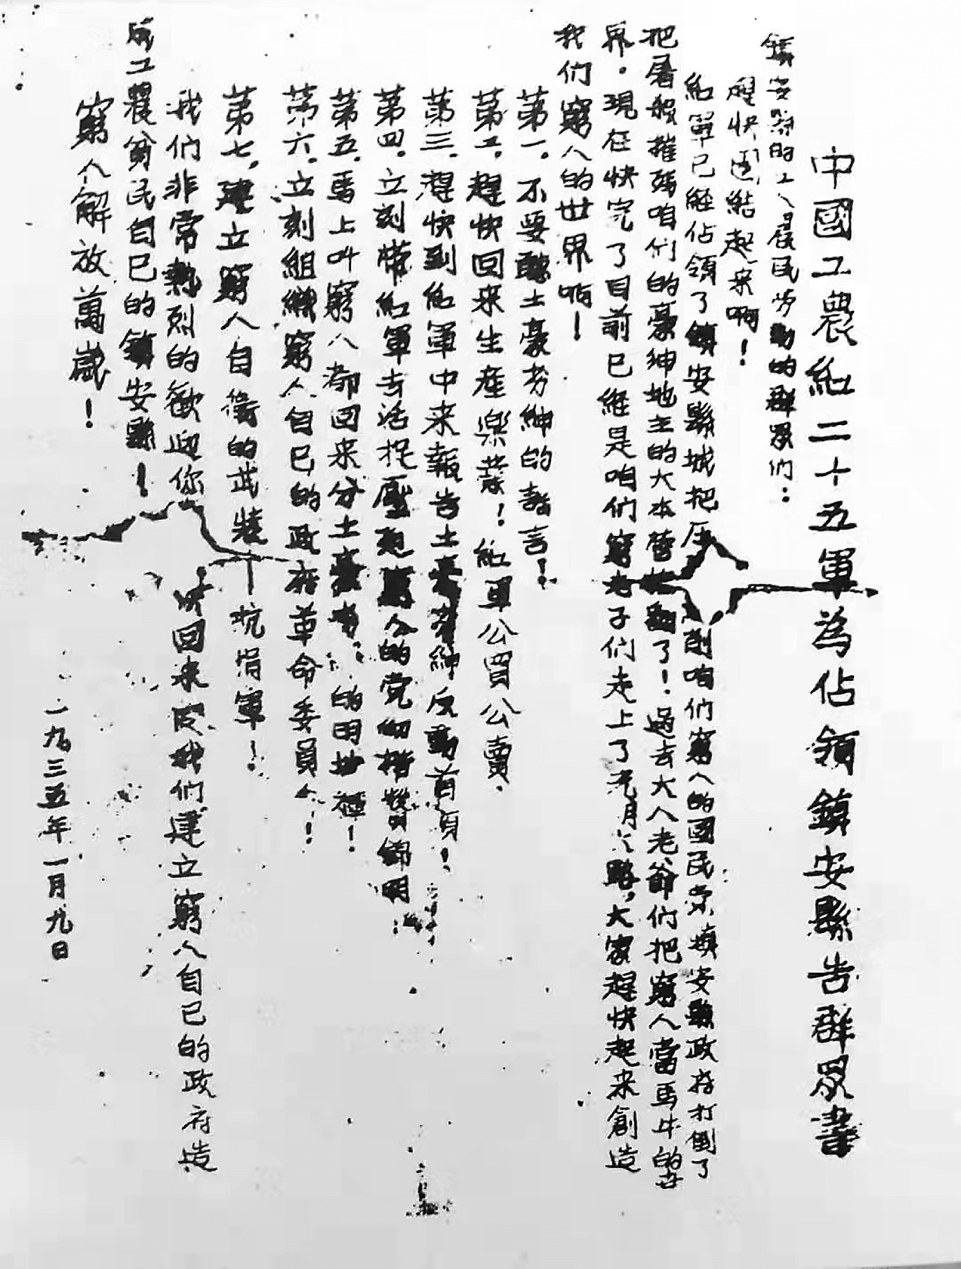 中國工農紅二十五軍為佔領鎮安縣告群眾書
鎮安縣的工人農民勞動的群眾們：
趕快團結起來啊！
紅軍已經佔領了鎮安縣城把压削咱们窮人的國民党鎮安縣政府打倒了
把屠殺摧殘咱们的豪紳地主的大本營了！過去大人老爺们把窮人當馬牛的世
界。現在快完了目前已經是咱们窮老子们走上了光明之路，大家趕快起来創造
我们窮人的世界啲！
第一．不要聽土豪劣紳的謠言！
第二．趕快回来生產樂業！紅軍公買公賣．
第三．趕快到紅軍中来報告土豪劣紳反動首領！
第四．立刻帶紅軍去活捉壓迫窮人的党
第五．馬上叫窮人都回来分土豪的田地種！
第六．立刻組織窮人自己的政府革命委員会！
第七．建立窮人自衛的武裝——抗捐軍！
我们非常熱烈的歡迎你回来同我们建立窮人自己的政府造
成工農貧民自己的鎮安縣！
窮人解放萬歲！
一九三五年一月九日